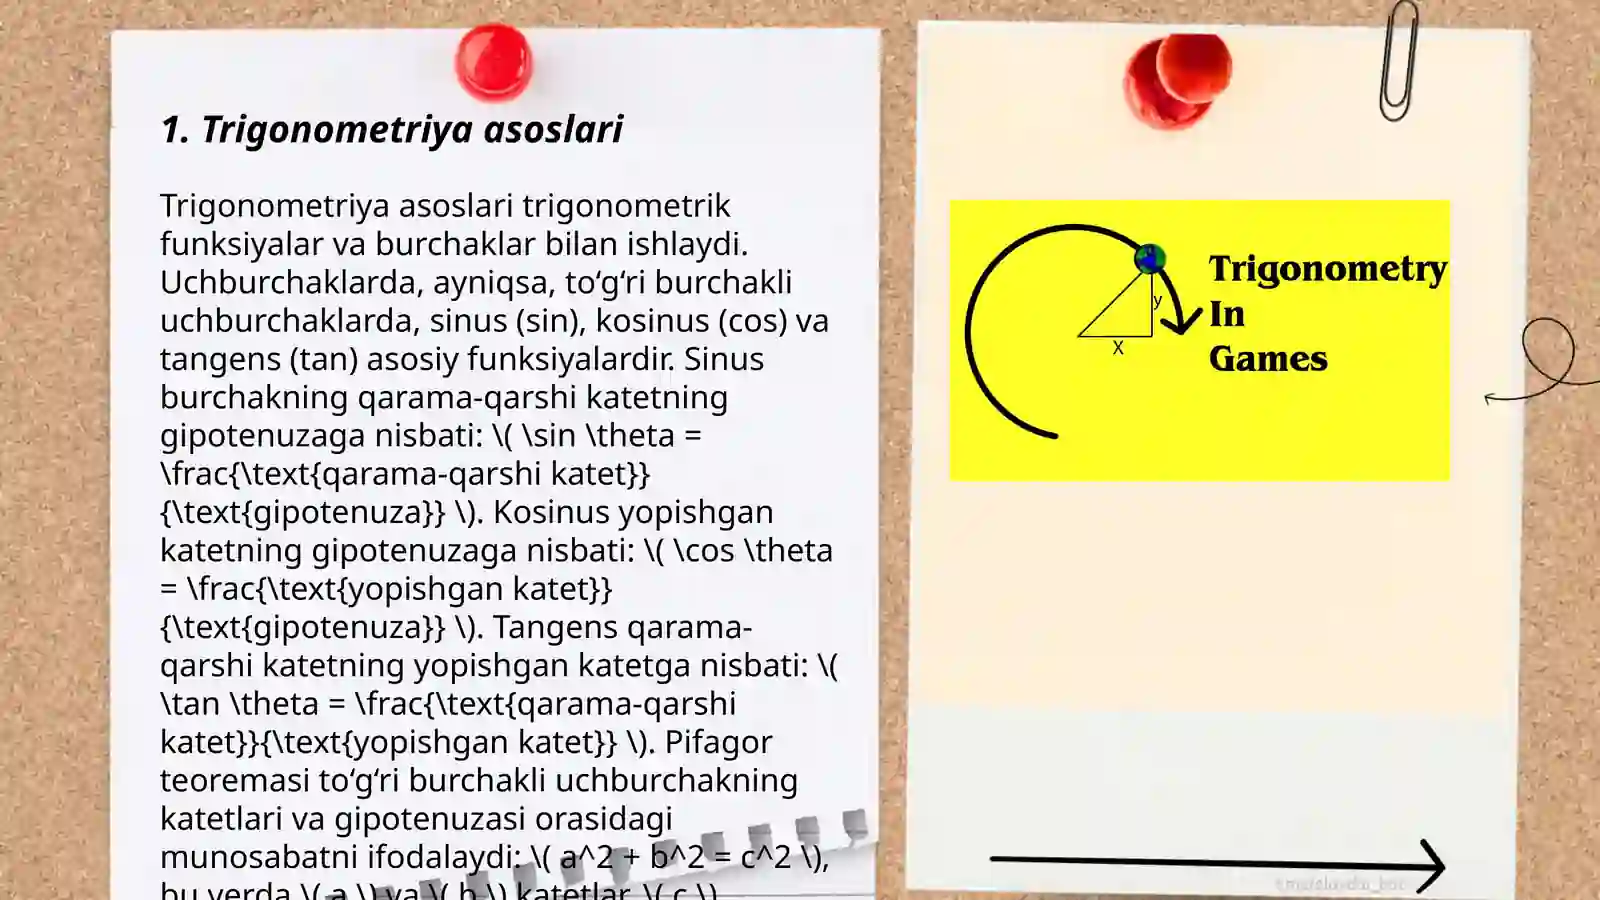 1. Trigonometriya asoslari
Trigonometriya asoslari trigonometrik
funksiyalar va burchaklar bilan ishlaydi.
Uchburchaklarda, ayniqsa, to‘g‘ri burchakli
uchburchaklarda, sinus (sin), kosinus (cos) va
tangens (tan) asosiy funksiyalardir. Sinus
burchakning qarama-qarshi katetning
gipotenuzaga nisbati: \( \sin \theta =
\frac{\text{qarama-qarshi katet}}
{\text{gipotenuza}} \). Kosinus yopishgan
katetning gipotenuzaga nisbati: \( \cos \theta
= \frac{\text{yopishgan katet}}
{\text{gipotenuza}} \). Tangens qarama-
qarshi katetning yopishgan katetga nisbati: \(
\tan \theta = \frac{\text{qarama-qarshi
katet}}{\text{yopishgan katet}} \). Pifagor
teoremasi to‘g‘ri burchakli uchburchakning
katetlari va gipotenuzasi orasidagi
munosabatni ifodalaydi: \( a^2 + b^2 = c^2 \),
bu yerda \( a \) va \( b \) katetlar, \( c \)
Trigonometry
In
Games
y
X